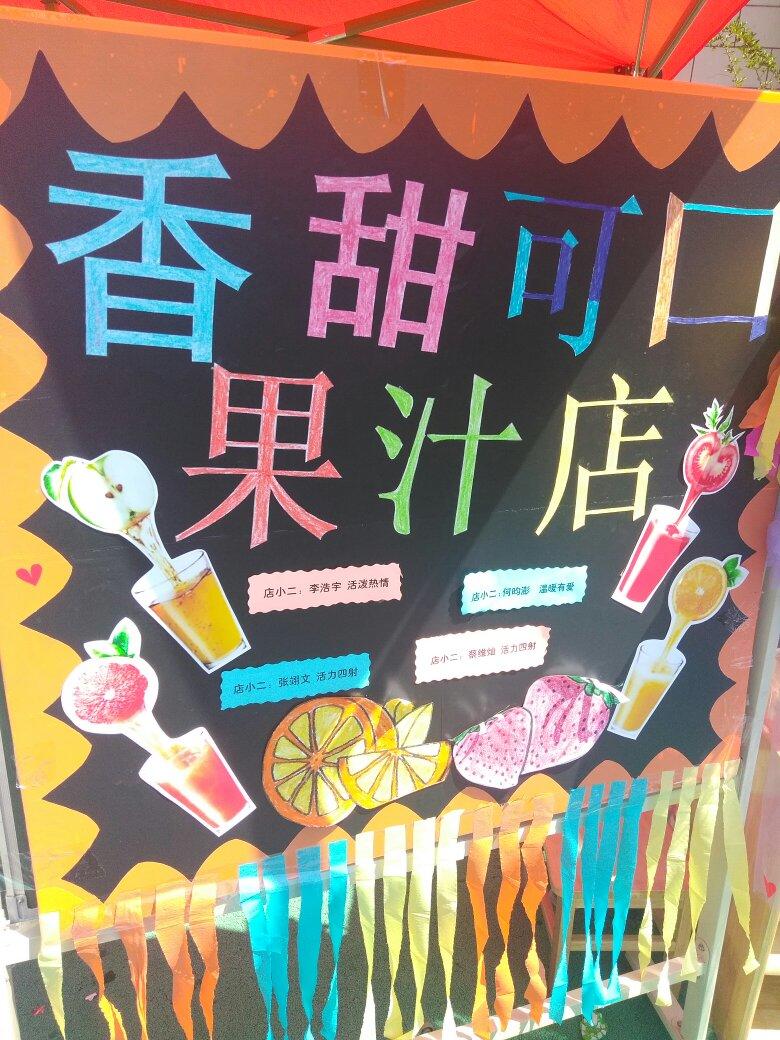 香甜可口
果汁店
店小二：李浩宇 活泼热情
店小二：何昀澎 温暖有爱
店小二：张翊文 活力四射
店小二：蔡维灿 活力四射